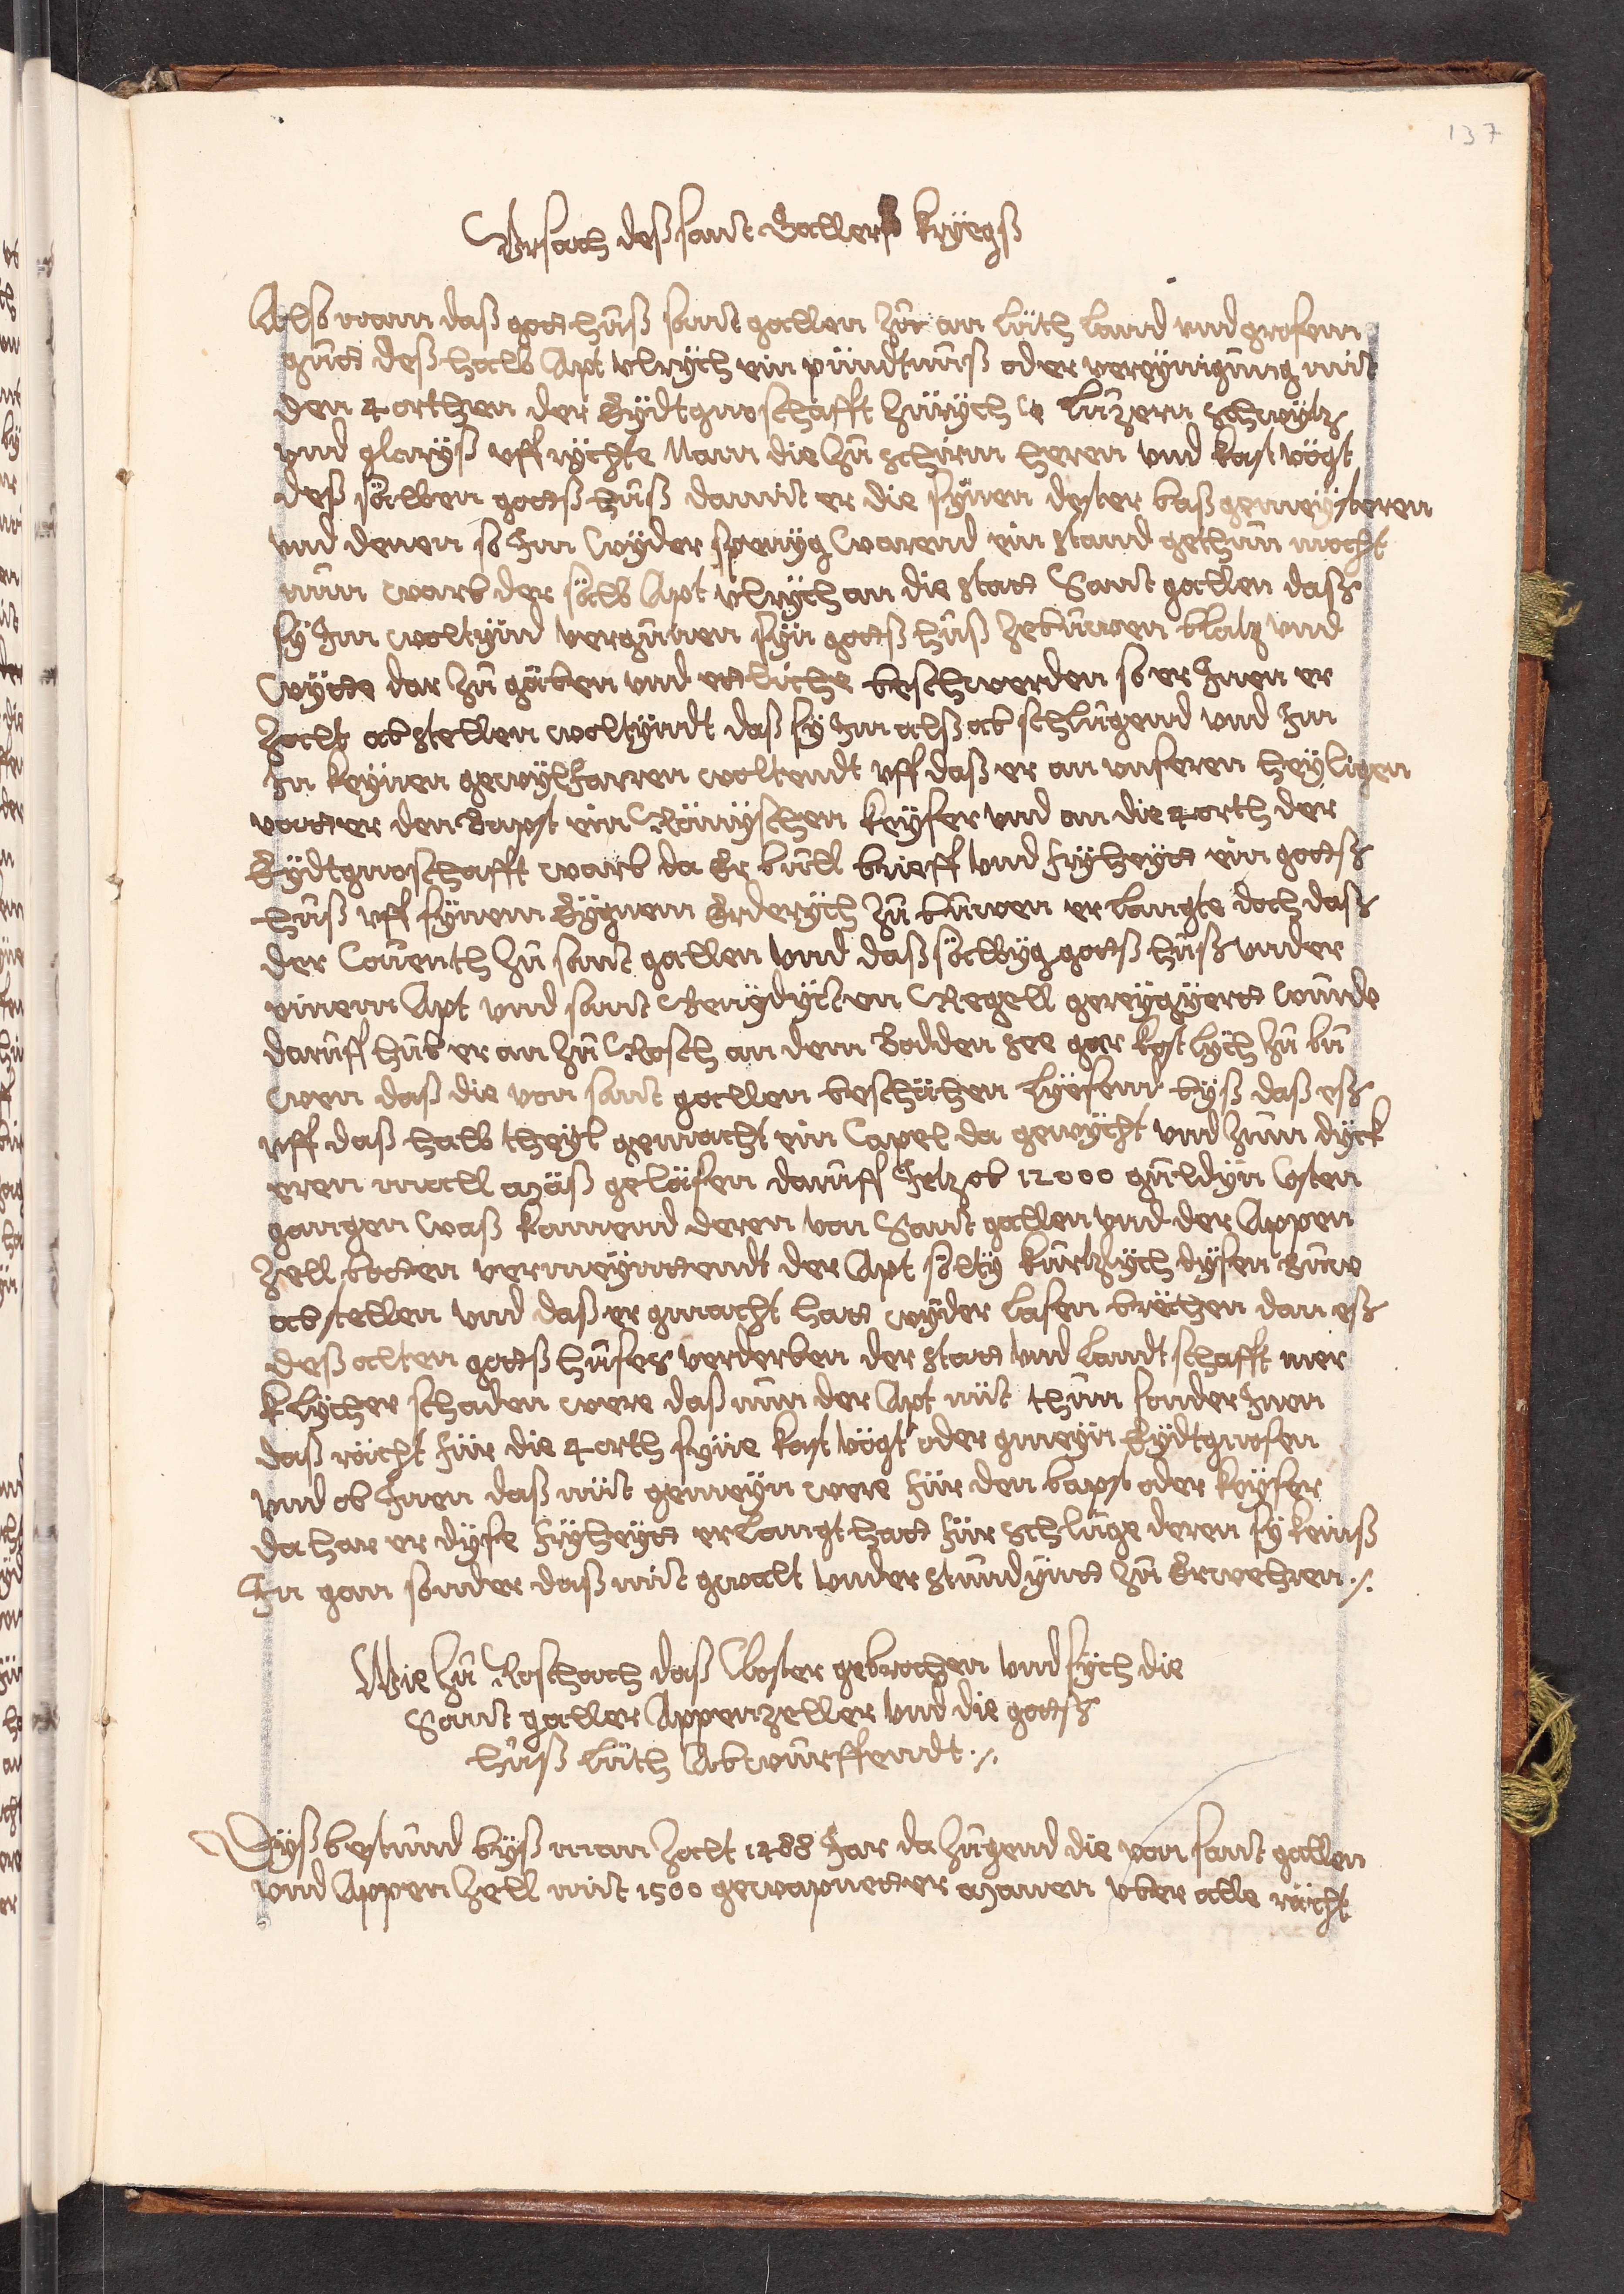 137
Ursach deß sant Galler Kryegß
Alß wann daß gottshuß sant gallen Zu an lüth land und grosem
gutt deß halb Apt vlrych ein pündtnuß oder vereynigung mit
den 4 orthen der Eydtgnoschafft Zürych Luzern schwytz
und glaryß uff rychte Nam die zu schirm heren und kast vögt
deß sälben gottß huß damit er die synen dester baß gemeysteren
und denen so Im wyder spenyg warend ein stand gethun mocht
nun warb der sälb Apt vlrych an die statt Sant gallen daß
sy Im woltynd vergünen syn gottß huß zebuwen blatz und
wytte dar zu gäben und ettliche beschwerden so er Inen er
Zalt abstellen woltyndt daß sy Im alß ab schlugend und Im
In keynen gewylfarren woltendt uff daß er an unseren heyligen
vatter den Bapst ein Römyschen keyser und an die 4 orth der
Eydtgnoschafft warb da Er bull brieff und fryheytt ein gottß
huß uff synem Eygnem Erderych zu buwen er langte doch daß
der Coventh zu sant gallen und daß sälbyg gottß huß under
einem Apt und sant Benydycten Regell gereygyertt wurde
daruff hub er an zu Rosch an dem Bodden see gar kostlych zu bu
wen daß die von sant gallen beschähen lyesend byß daß eß
uff daß halb theyl gemacht ein Capel da gewycht und zum dyck
eren mall mäß geläsen daruff Jetz ob 12000 guldyn Costen
gangen waß kamend deren von Sant gallen und der Appen
Zell botten vermeynttendt der Apt sölty kurtzlych dysen buw
abstellen und daß er gmacht hatt wyder lasen brechen dan eß
deß alten gottß huses verderben der statt und landtschafft mer
klycher schaden were daß nun der Apt nüt thun sonder Inen
daß rächt für die 4 orth syne kast vögt oder gmeyn Eydtgnosen
und ob Inen daß nüt gemeyn were für den bapst oder keyser
da har er dyse fryheytt erlangt hatt für schluge deren sy keinß
In gan sonder daß mit gwalt understundyntt zu Erwehren ./.
Wie zu Roschach daß Closter gebrochen und sych die
Sant galler Appenzeller und die gottß
huß lüth Abwurffendt ./.
Dyß bestund byß man zalt 1488 Jar da zugend die von sant gallen
und Appen Zell mit 1500 gewapnetter manen über alle rächt